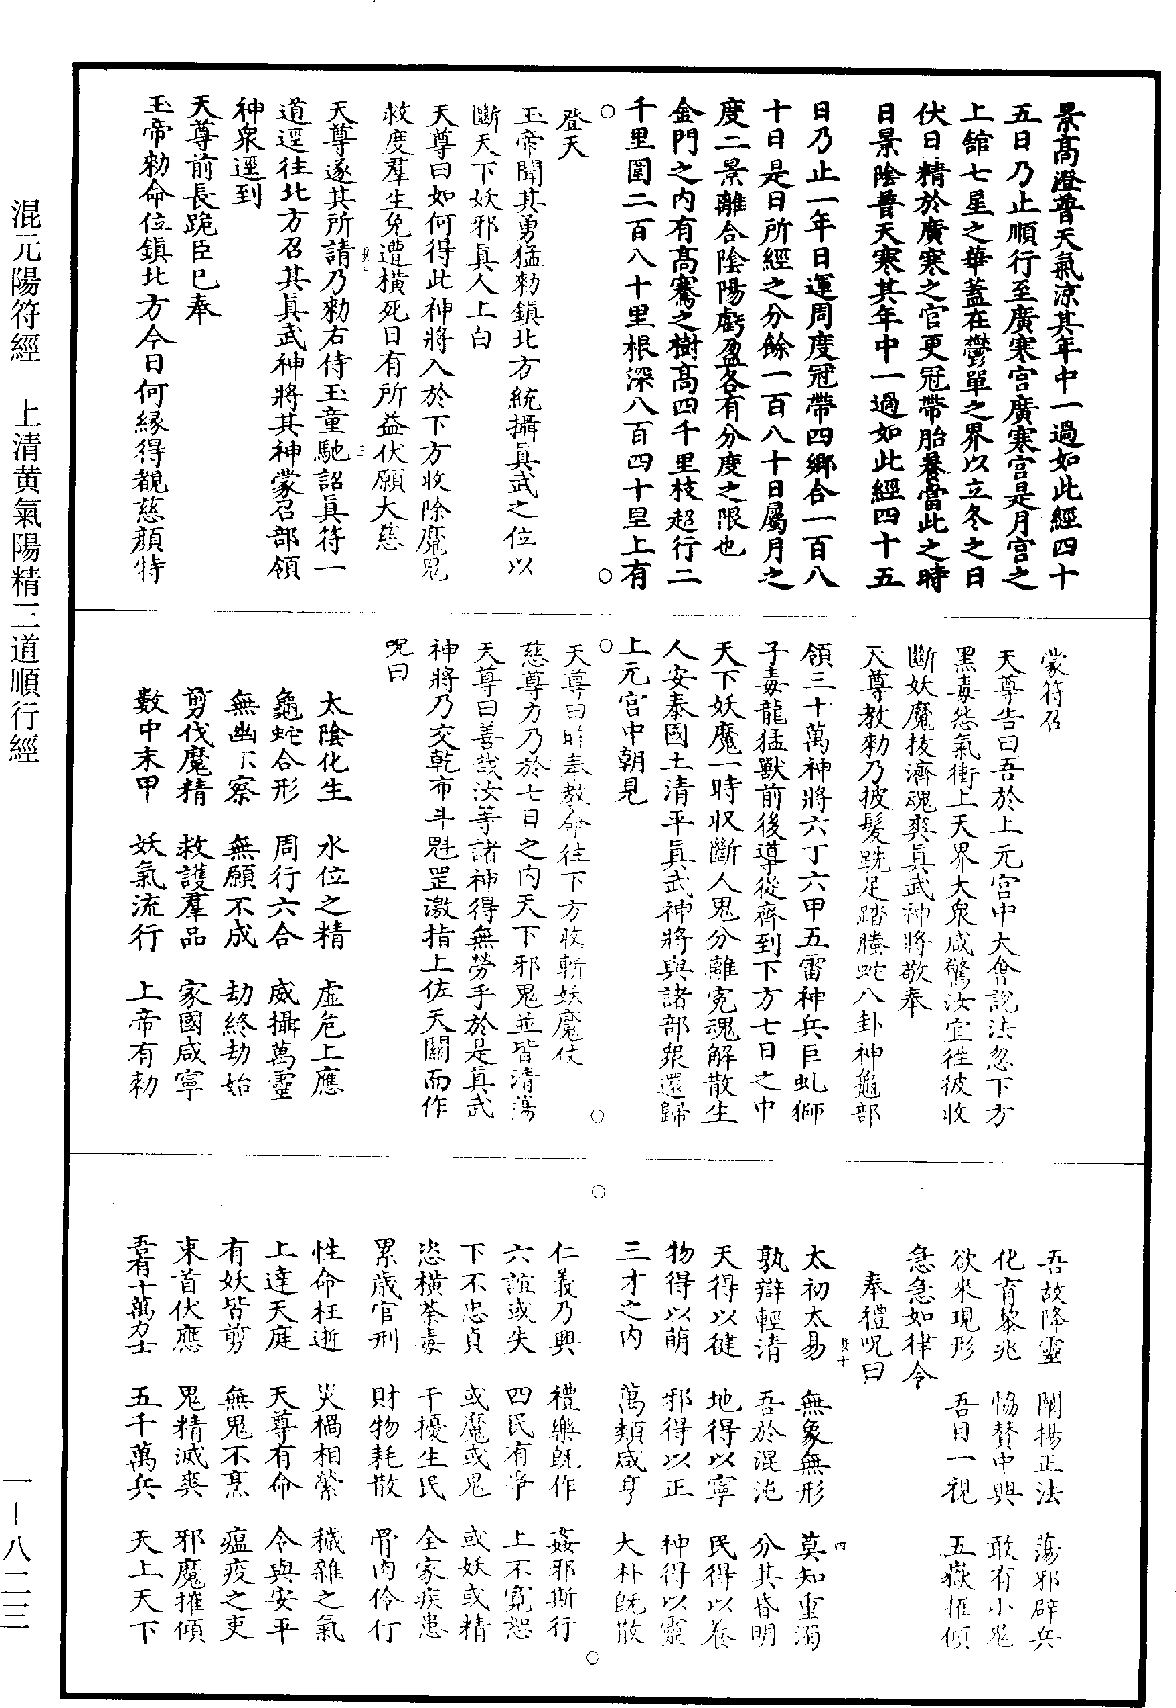 景高澄普天氣凉其年中一過如此經四十
五日乃止順行至廣寒宮廣寒宮是月宮之
上舘七星之華蓋在鬱單之界以立冬之日
伏日精於廣寒之官更冠帶胎養當此之時
日景陰普天寒其年中一過如此經四十五
日乃止一年日運周度冠帶四鄉合一百八
十日是日所經之分餘一百八十日屬月之
度二景離合陰陽虧盈各有分度之限也
金門之內有高騫之樹高四千里枝超行二
千里圍二百八十里根深八百四十里上有
登天
玉帝聞其勇猛勑鎮北方統攝真武之位以
斷天下妖邪真人上白
天尊曰如何得此神將入於下方收除魔鬼
救度羣生免遭橫死日有所益伏願大慈
天尊遂其所請乃勑右侍玉童馳詔真符一
道逕往北方召其真武神將其神蒙召部領
神衆逕到
天尊前長跪臣已奉
玉帝勑命位鎮北方今日何緣得覩慈顏特
蒙符召
天尊告曰吾於上元宮中大會說法忽下方
黑毒㤪氣衝上天界大衆咸驚汝宜徃彼收
斷妖魔拔濟魂爽真武神將敬奉
天尊教勑乃披髮跣足踏螣蛇八卦神龜部
領三十萬神將六丁六甲五雷神兵巨虬獅
子毒龍猛獸前後導從齊到下方七日之中
天下妖魔一時収斷人鬼分離寃魂解散生
人安泰國土清平真武神將與諸部衆還歸
上元宮中朝見
天尊曰昨奉教命往下方收斬妖魔仗
慈尊力乃於七日之內天下邪鬼並皆清蕩
天尊曰善哉汝等諸神得無勞乎於是真武
神將乃交乾布斗魁罡激指上佐天關而作
呪曰
太陰化生 水位之精 虛危上應
龜蛇合形 周行六合 威攝萬靈
無幽不察 無願不成 劫終劫始
剪伐魔精 救護羣品 家國咸寧
數中末甲 妖氣流行 上帝有勑
吾故降靈 闡揚正法 蕩邪辟兵
化育黎兆 協賛中興 敢有小鬼
欲來現形 吾目一視 五嶽摧傾
急急如律令
奉禮呪曰
太初太易 無象無形 莫知重濁
孰辯輕清 吾於混沌 分其昏明
天得以健 地得以寧 民得以養
物得以萌 邪得以正 神得以靈
三才之內 萬類咸亨 大朴既散
仁義乃興 禮樂既作 姦邪斯行
六誼或失 四民有爭 上不寬恕
下不忠貞 或魔或鬼 或妖或精
恣橫荼毒 干擾生民 全家疾患
累歲官刑 財物耗散 骨肉伶仃
性命枉逝 災禍相縈 穢雜之氣
上達天庭 天尊有命 令與安平
有妖皆剪 無鬼不烹 瘟疫之吏
束首伏應 鬼精滅爽 邪魔摧傾
吾有十萬力士 五千萬兵 天上天下
混元陽符經 上清黄氣陽精三道順行經
一—八二三